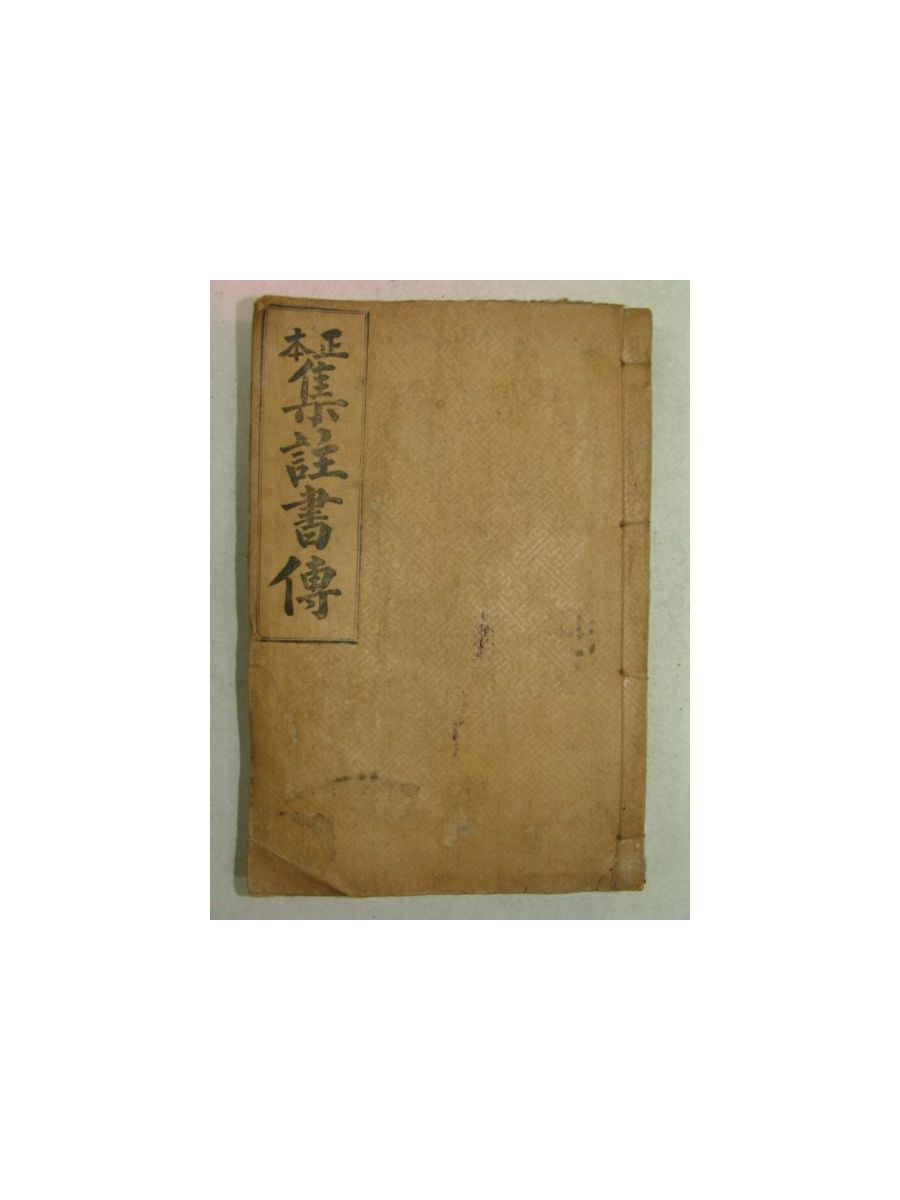 正本
集註書傳